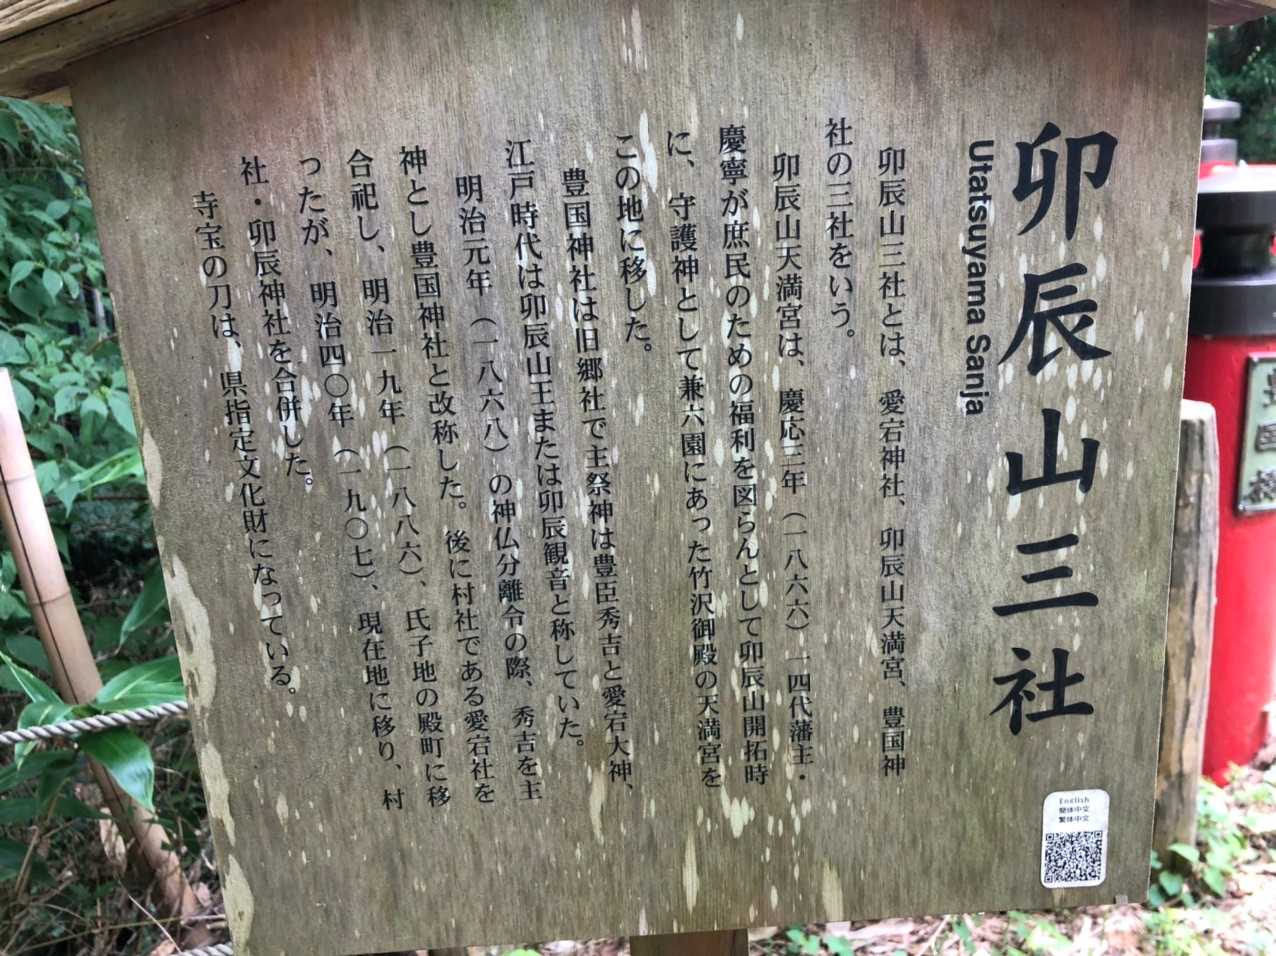 卯辰山三社
Utatsuyama Sanja
卯辰山三社とは、愛宕神社、卯辰山天満宮、豊国神
社の三社をいう。
卯辰山天満宮は、慶応二年（一八六六）一四代藩主・
慶寧が庶民のための福利を図らんとして卯辰山開拓時
に、守護神として兼六園にあった竹沢御殿の天満宮を
この地に移した。
豊国神社は旧郷社で主祭神は豊臣秀吉と愛宕大神、
江戸時代は卯辰山王または卯辰観音と称していた。
明治元年（一八六八）の神仏分離令の際、秀吉を主
神とし豊国神社と改称した。後に村社である愛宕社を
合祀し、明治一九年（一八八六）、氏子地の殿町に移
ったが、明治四〇年（一九〇七）、現住地に移り、村
社・卯辰神社を合併した。
寺宝の刀は、県指定文化財になっている。
English
簡体中文
繁体中文